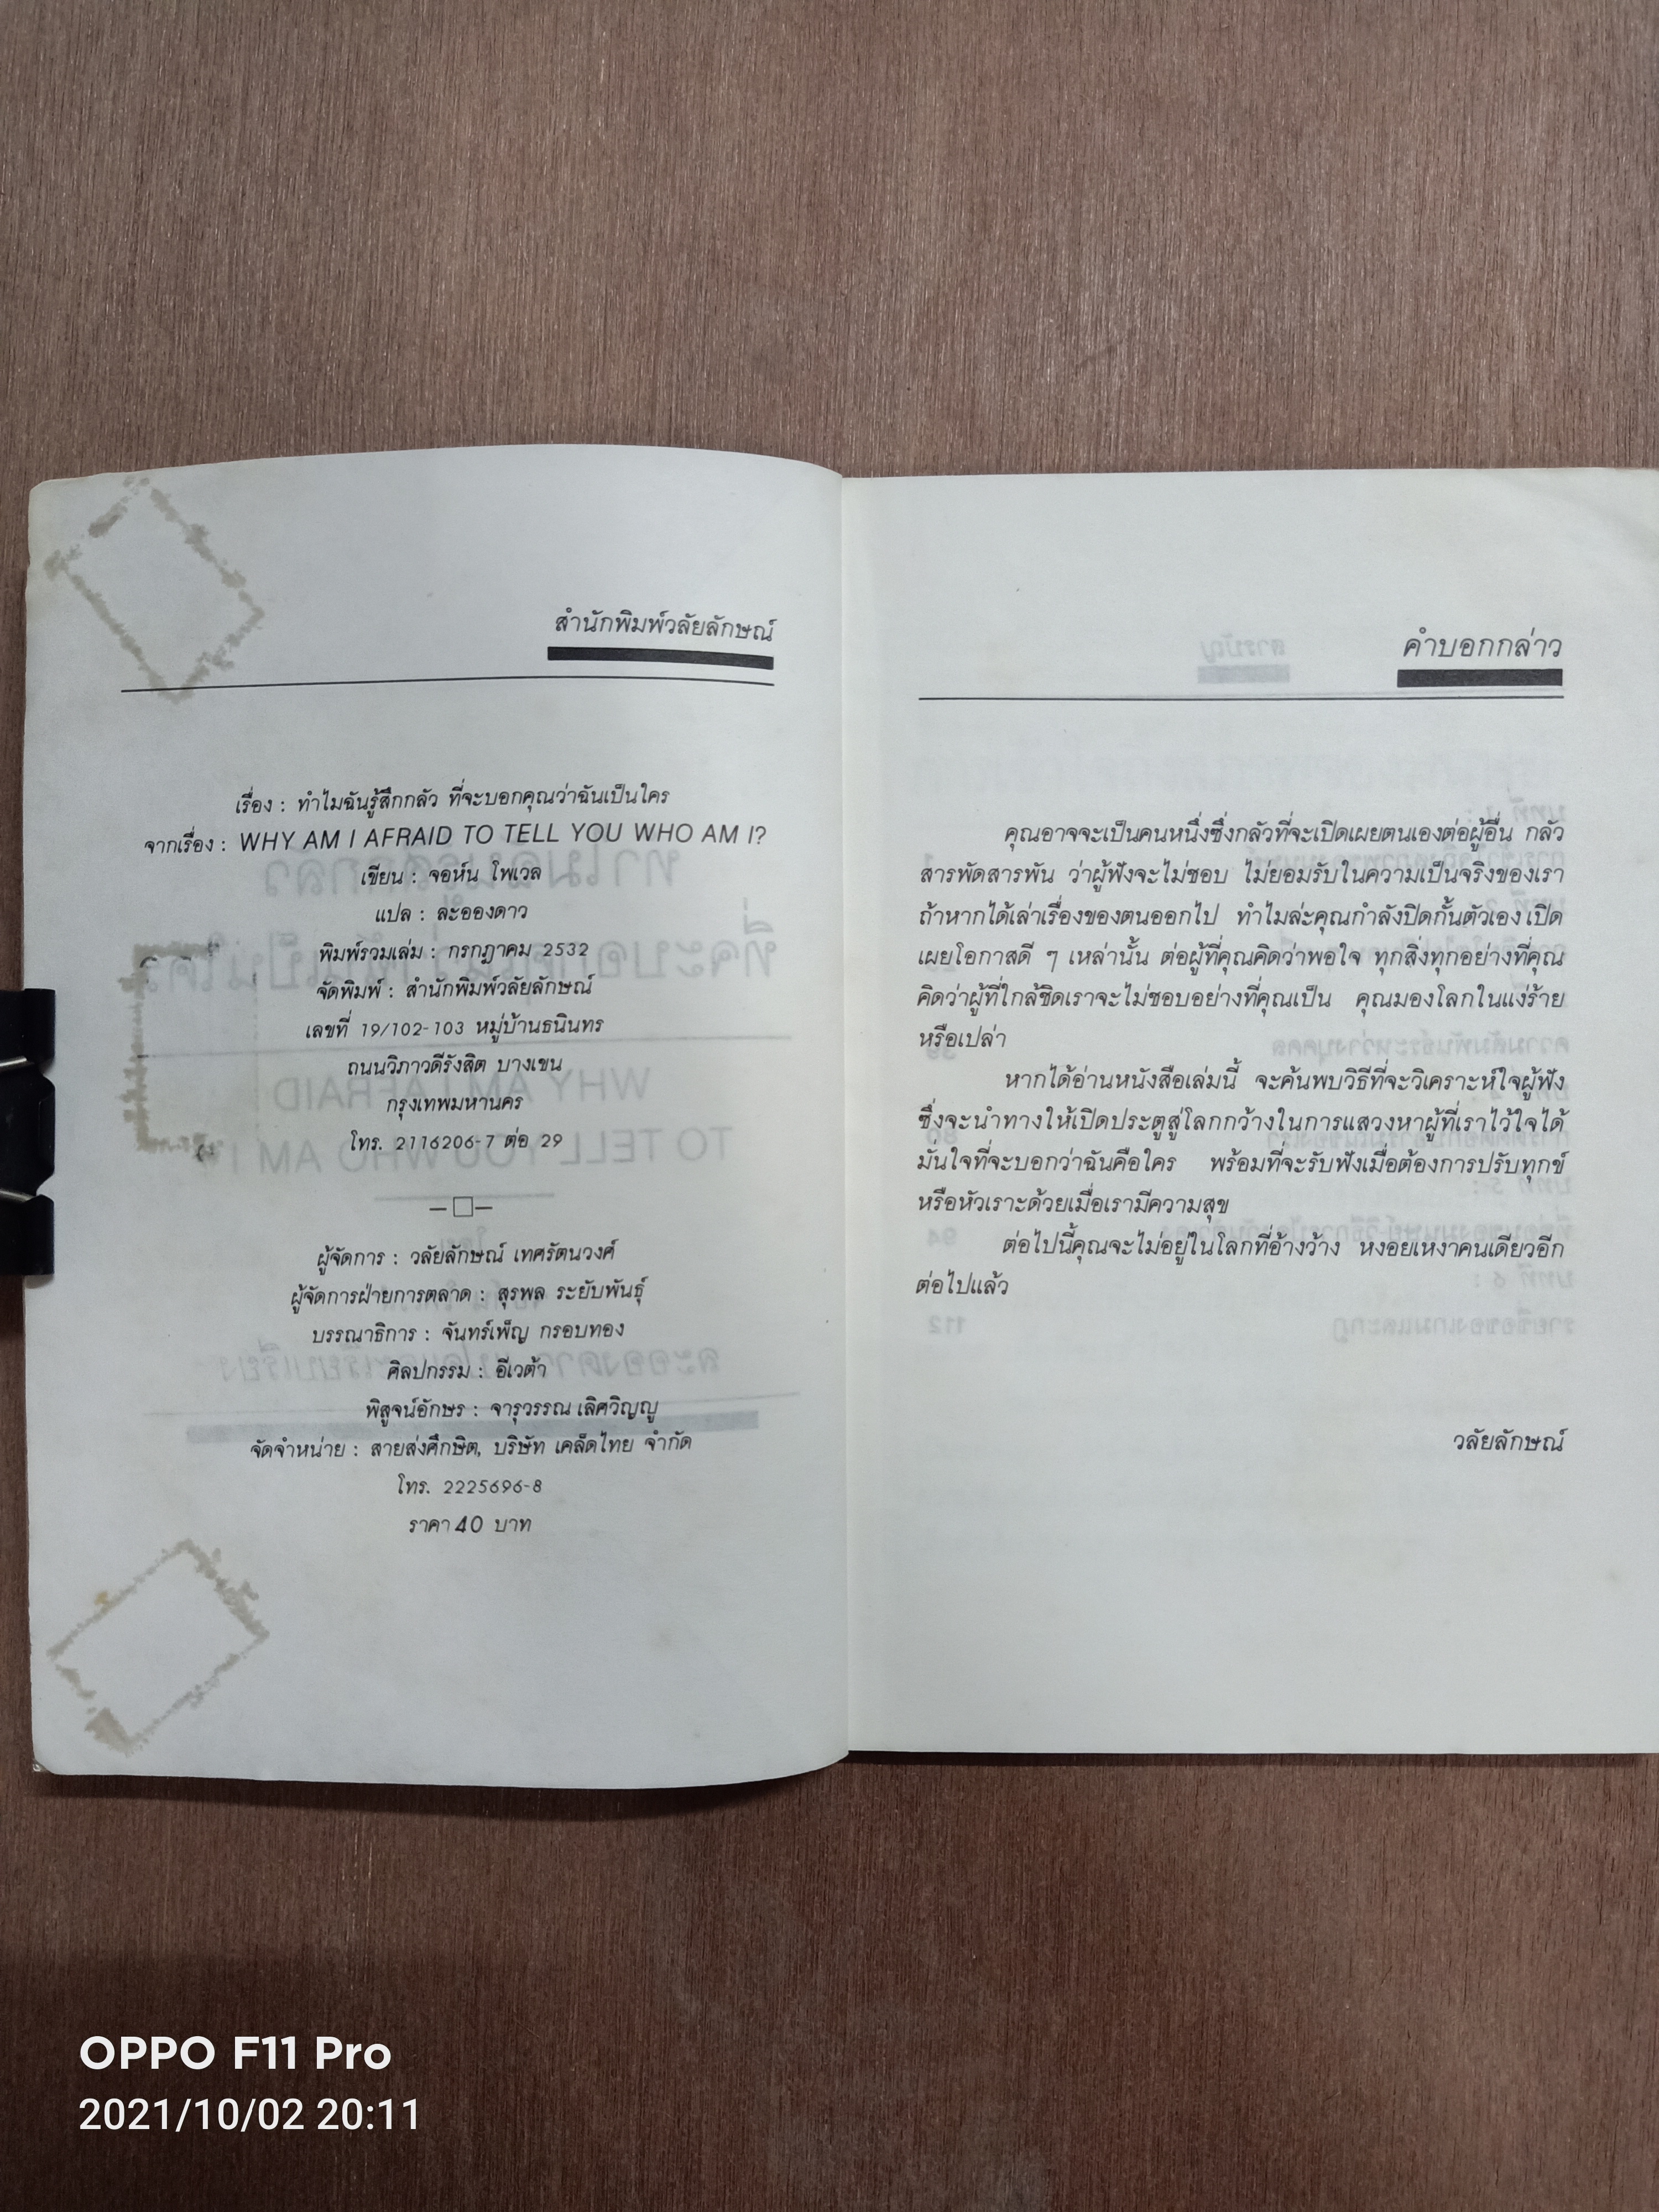 สำนักพิมพ์วลัยลักษณ์
เรื่อง : ทำไมฉันรู้สึกกลัว ที่จะบอกคุณว่าฉันเป็นใคร
จากเรื่อง : WHY AM I AFRAID TO TELL YOU WHO AM I?
เขียน : จอห์น โพเวล
แปล : ละอองดาว
พิมพ์รวมเล่ม : กรกฎาคม 2532
จัดพิมพ์ : สำนักพิมพ์วลัยลักษณ์
เลขที่ 19/102-103 หมู่บ้านธนินทร
ถนนวิภาวดีรังสิต บางเขน
กรุงเทพมหานคร
โทร. 2116206-7 ต่อ 29
ผู้จัดการ : วลัยลักษณ์ เทศรัตนวงศ์
ผู้จัดการฝ่ายการตลาด : สุรพล ระยับพันธุ์
บรรณาธิการ : จันทร์เพ็ญ กรอบทอง
ศิลปกรรม : อีเวต้า
พิสูจน์อักษร : จารุวรรณ เลิศวิญญู
จัดจำหน่าย : สายส่งศึกษิต, บริษัท เคล็ดไทย จำกัด
โทร. 2225696-8
ราคา 40 บาท
คำบอกกล่าว
คุณอาจจะเป็นคนหนึ่งซึ่งกลัวที่จะเปิดเผยตนเองต่อผู้อื่น กลัว
สารพัดสารพัน ว่าผู้ฟังจะไม่ชอบ ไม่ยอมรับในความเป็นจริงของเรา
ถ้าหากได้เล่าเรื่องของตนออกไป ทำไมล่ะคุณกำลังปิดกั้นตัวเอง เปิด
เผยโอกาสดี ๆ เหล่านั้น ต่อผู้ที่คุณคิดว่าพอใจ ทุกสิ่งทุกอย่างที่คุณ
คิดว่าผู้ที่ใกล้ชิดเราจะไม่ชอบอย่างที่คุณเป็น คุณมองโลกในแง่ร้าย
หรือเปล่า
หากได้อ่านหนังสือเล่มนี้ จะค้นพบวิธีที่จะวิเคราะห์ใจผู้ฟัง
ซึ่งจะนำทางให้เปิดประตูสู่โลกกว้างในการแสวงหาผู้ที่เราไว้ใจได้
มั่นใจที่จะบอกว่าฉันคือใคร พร้อมที่จะรับฟังเมื่อต้องการปรับทุกข์
หรือหัวเราะด้วยเมื่อเรามีความสุข
ต่อไปนี้คุณจะไม่อยู่ในโลกที่อ้างว้าง หงอยเหงาคนเดียวอีก
ต่อไปแล้ว
วลัยลักษณ์
OPPO F11 Pro
2021/10/02 20:11